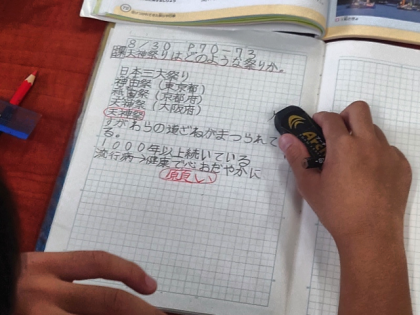 8/30 P70-73
課天神祭りはどのような祭りか。
日本三大祭り
神田祭(東京都)
祇園祭(京都府)
天神祭(大阪府)
天神祭
すがわらの道ざねがまつられて
る。
1000年以上続いている
流行病→健康で心おだやかに
願い